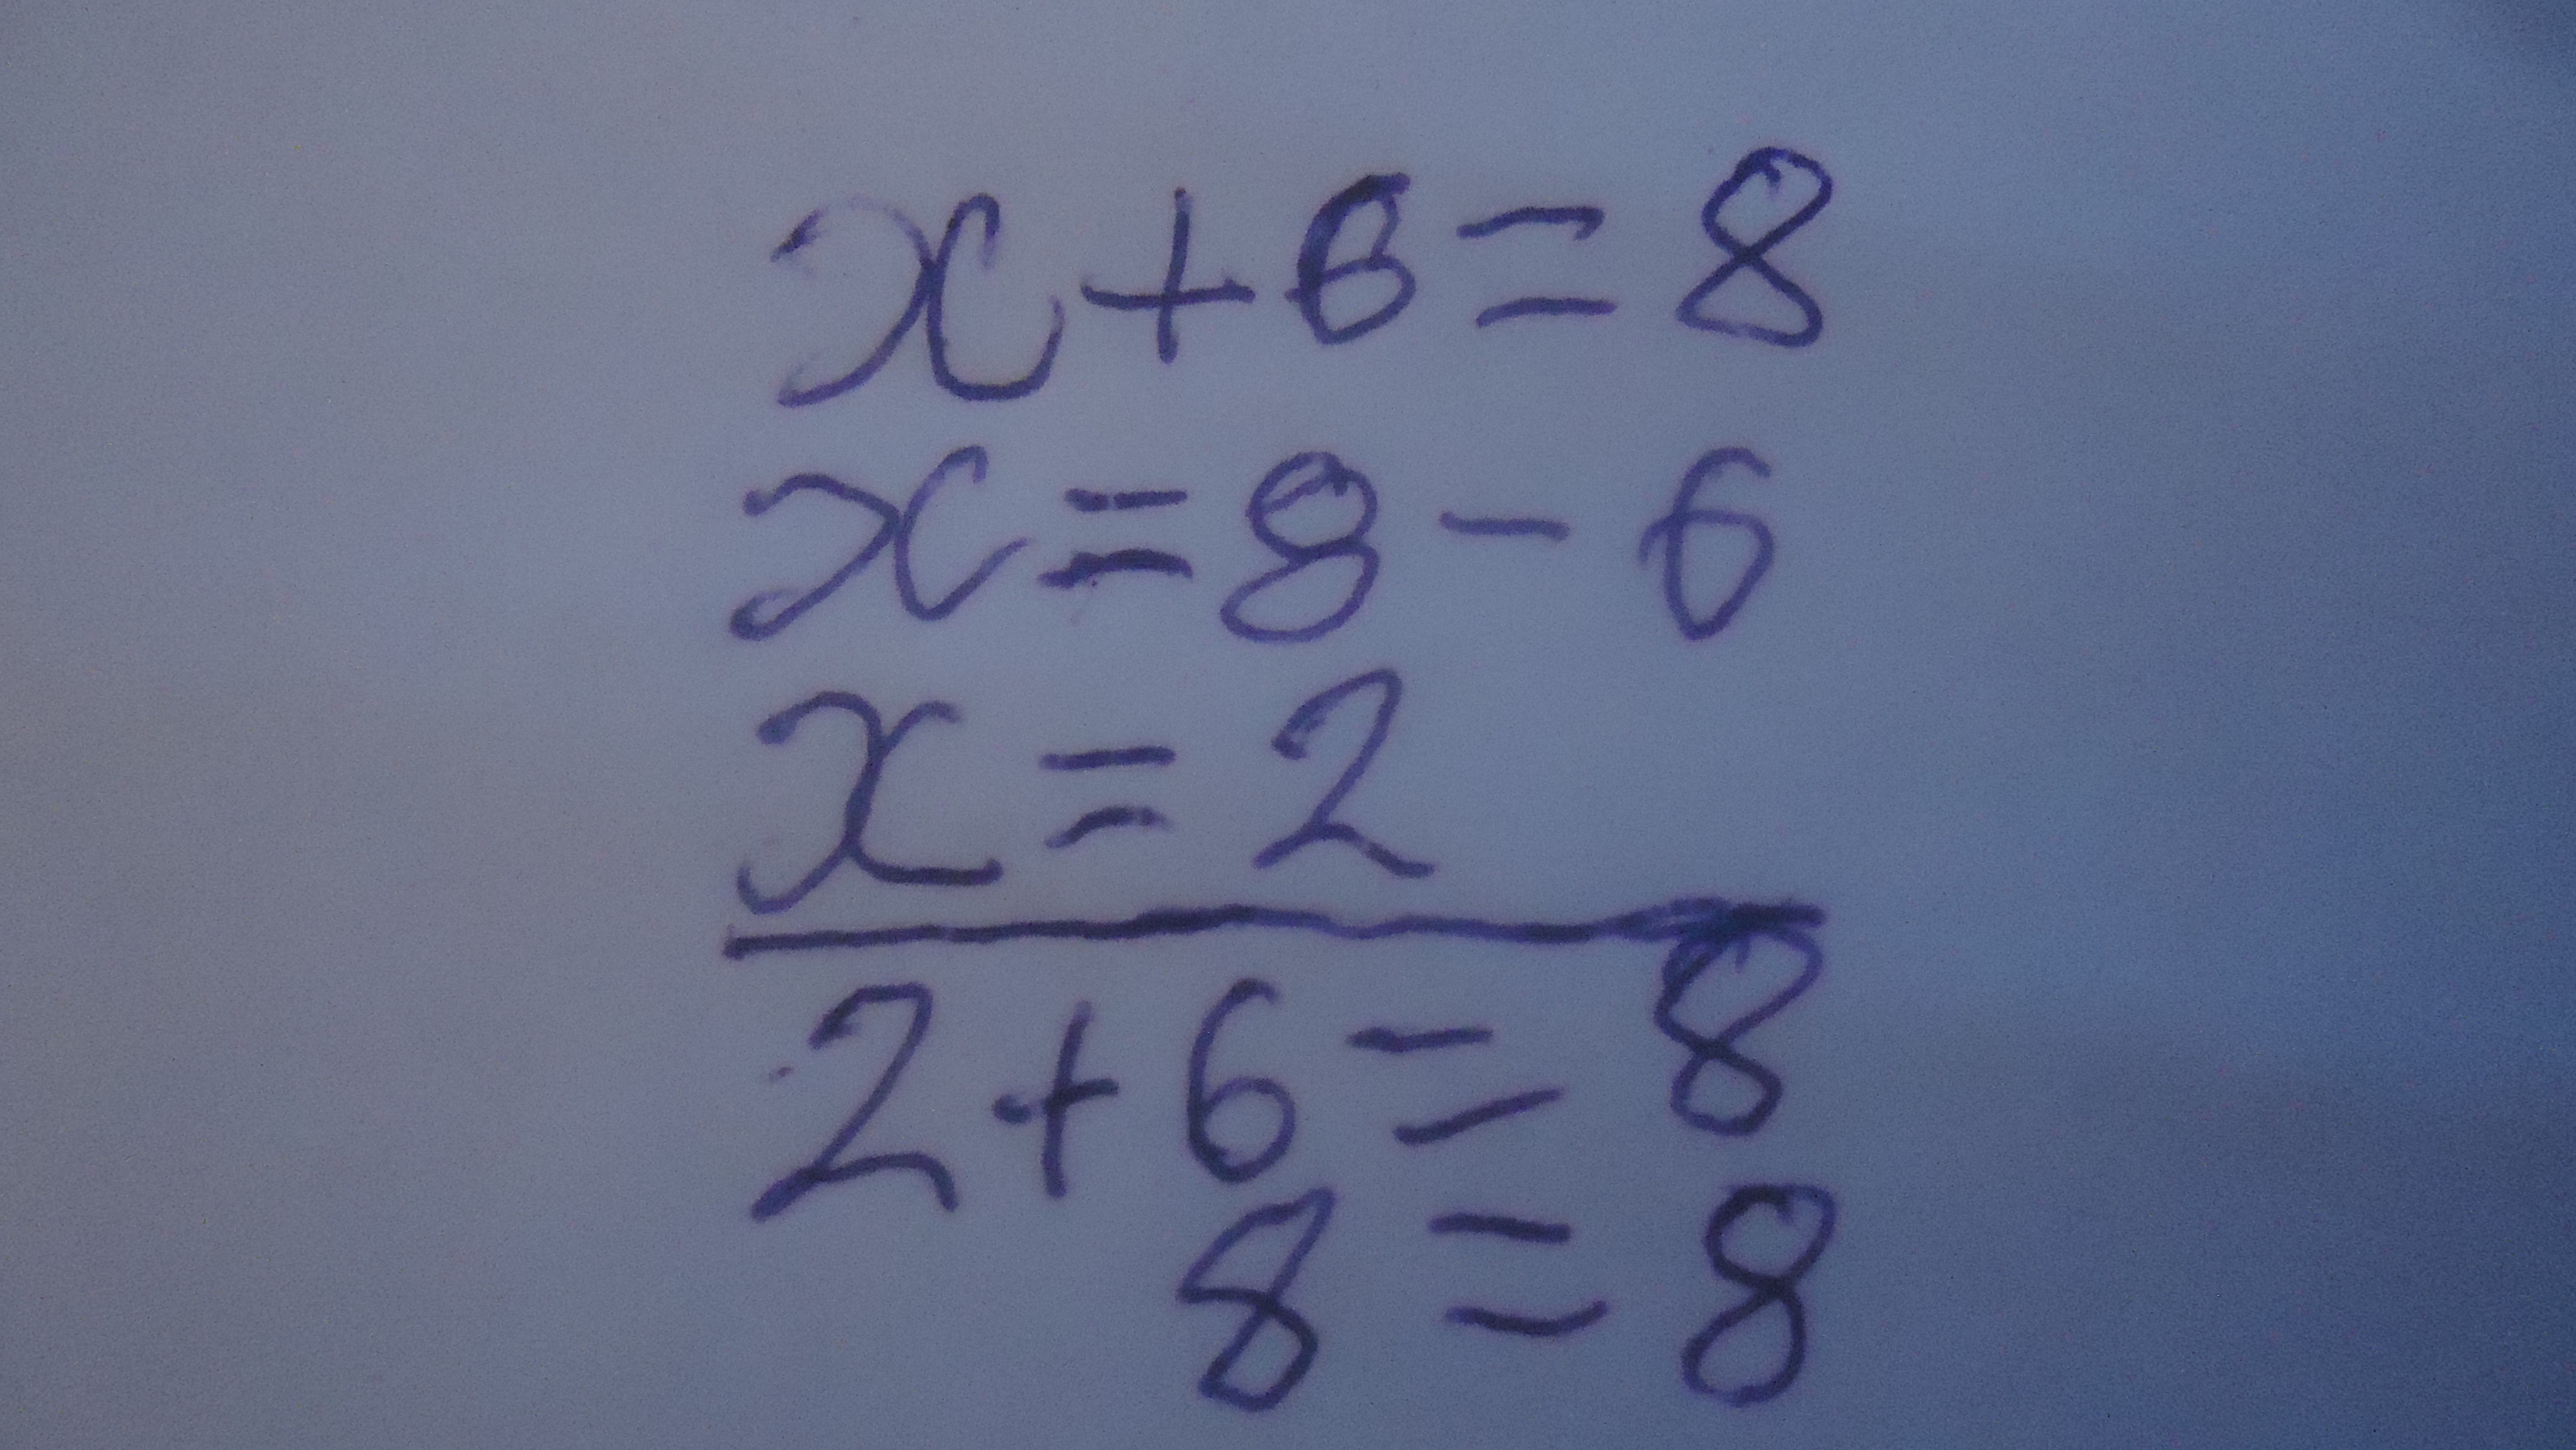 x+6=8
x=8-6
x=2
2+6=8
8=8